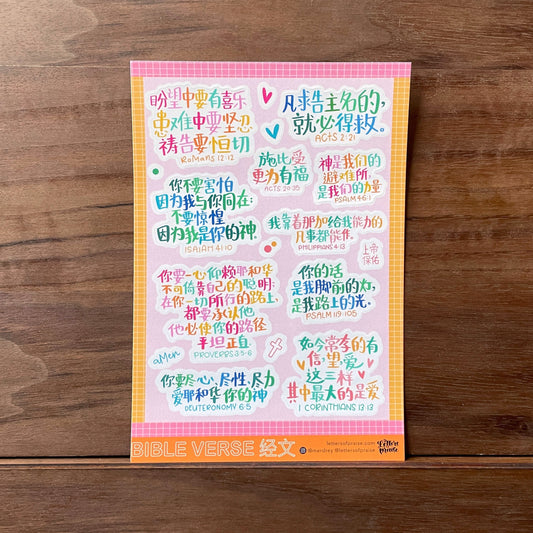 盼望中要有喜乐
患难中要坚忍
祷告要恒切
ROMANS 12:12
凡求告主名的,
就必得救。
ACTS 2:21
施比受
更为有福
ACTS 20:35
神是我们的
避难所,
是我们的力量
PSALM 46:1
你不要害怕
因为我与你同在;
不要惊惶
因为我是你的神
ISAIAH 41:10
我靠着那加给我能力的
凡事都能做。
PHILIPPIANS 4:13
上帝
保佑
你要一心仰赖耶和华
不可倚靠自己的聪明;
在你一切所行的路上,
都要承认他
他必使你的路径
平坦正直
PROVERBS 3:5-6
你的话
是我脚前的灯,
是我路上的光。
PSALM 119:105
amen
如今常存的有
信,望,爱
这三样
其中最大的是爱
1 CORINTHIANS 13:13
你要尽心、尽性、尽力
爱耶和华你的神
DEUTERONOMY 6:5
BIBLE VERSE 经文
lettersofpraise.com
@merdrey @lettersofpraise
Letters of praise